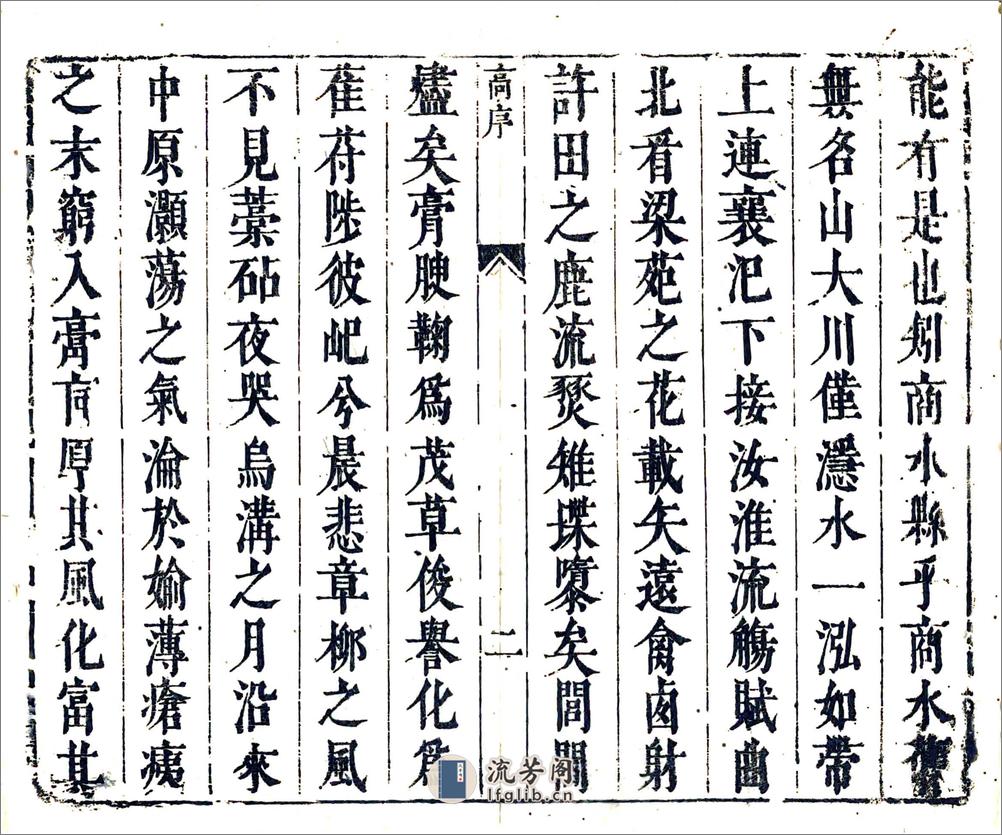 能有是也矧商水縣乎商水
無名山大川僅濦水一泓如帶
上連襄汜下接汝淮流觴賦曲
北看梁苑之花載矢遠禽鹵射
許田之鹿流燹雉堞隳矣閭閻
高序
二
燼矣膏腴鞠爲茂草俊譽化爲
萑苻陟彼屺兮晨悲章柳之風
不見藁砧夜哭烏溝之月沿來
中原灝蕩之氣淪於媮薄瘡痍
之末窮入膏肓原其風化富其
流芳阁
lfglib.cn